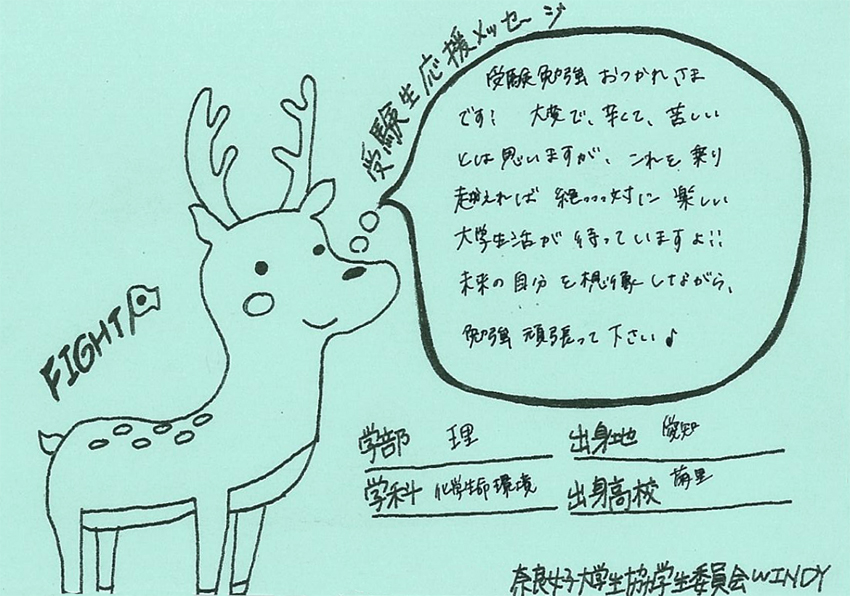 受験生応援メッセージ
受験勉強 おつかれさま
です! 大変で、辛くて、苦しい
とは思いますが、これを乗り
越えれば 絶っっっ対に 楽しい
大学生活が 待っていますよ!!
未来の自分を想像しながら、
勉強頑張って下さい♪
FIGHT!
学部 理
出身地 愛知
学科 化学生命環境
出身高校 菊里
奈良女子大学生協学生委員会WINDY